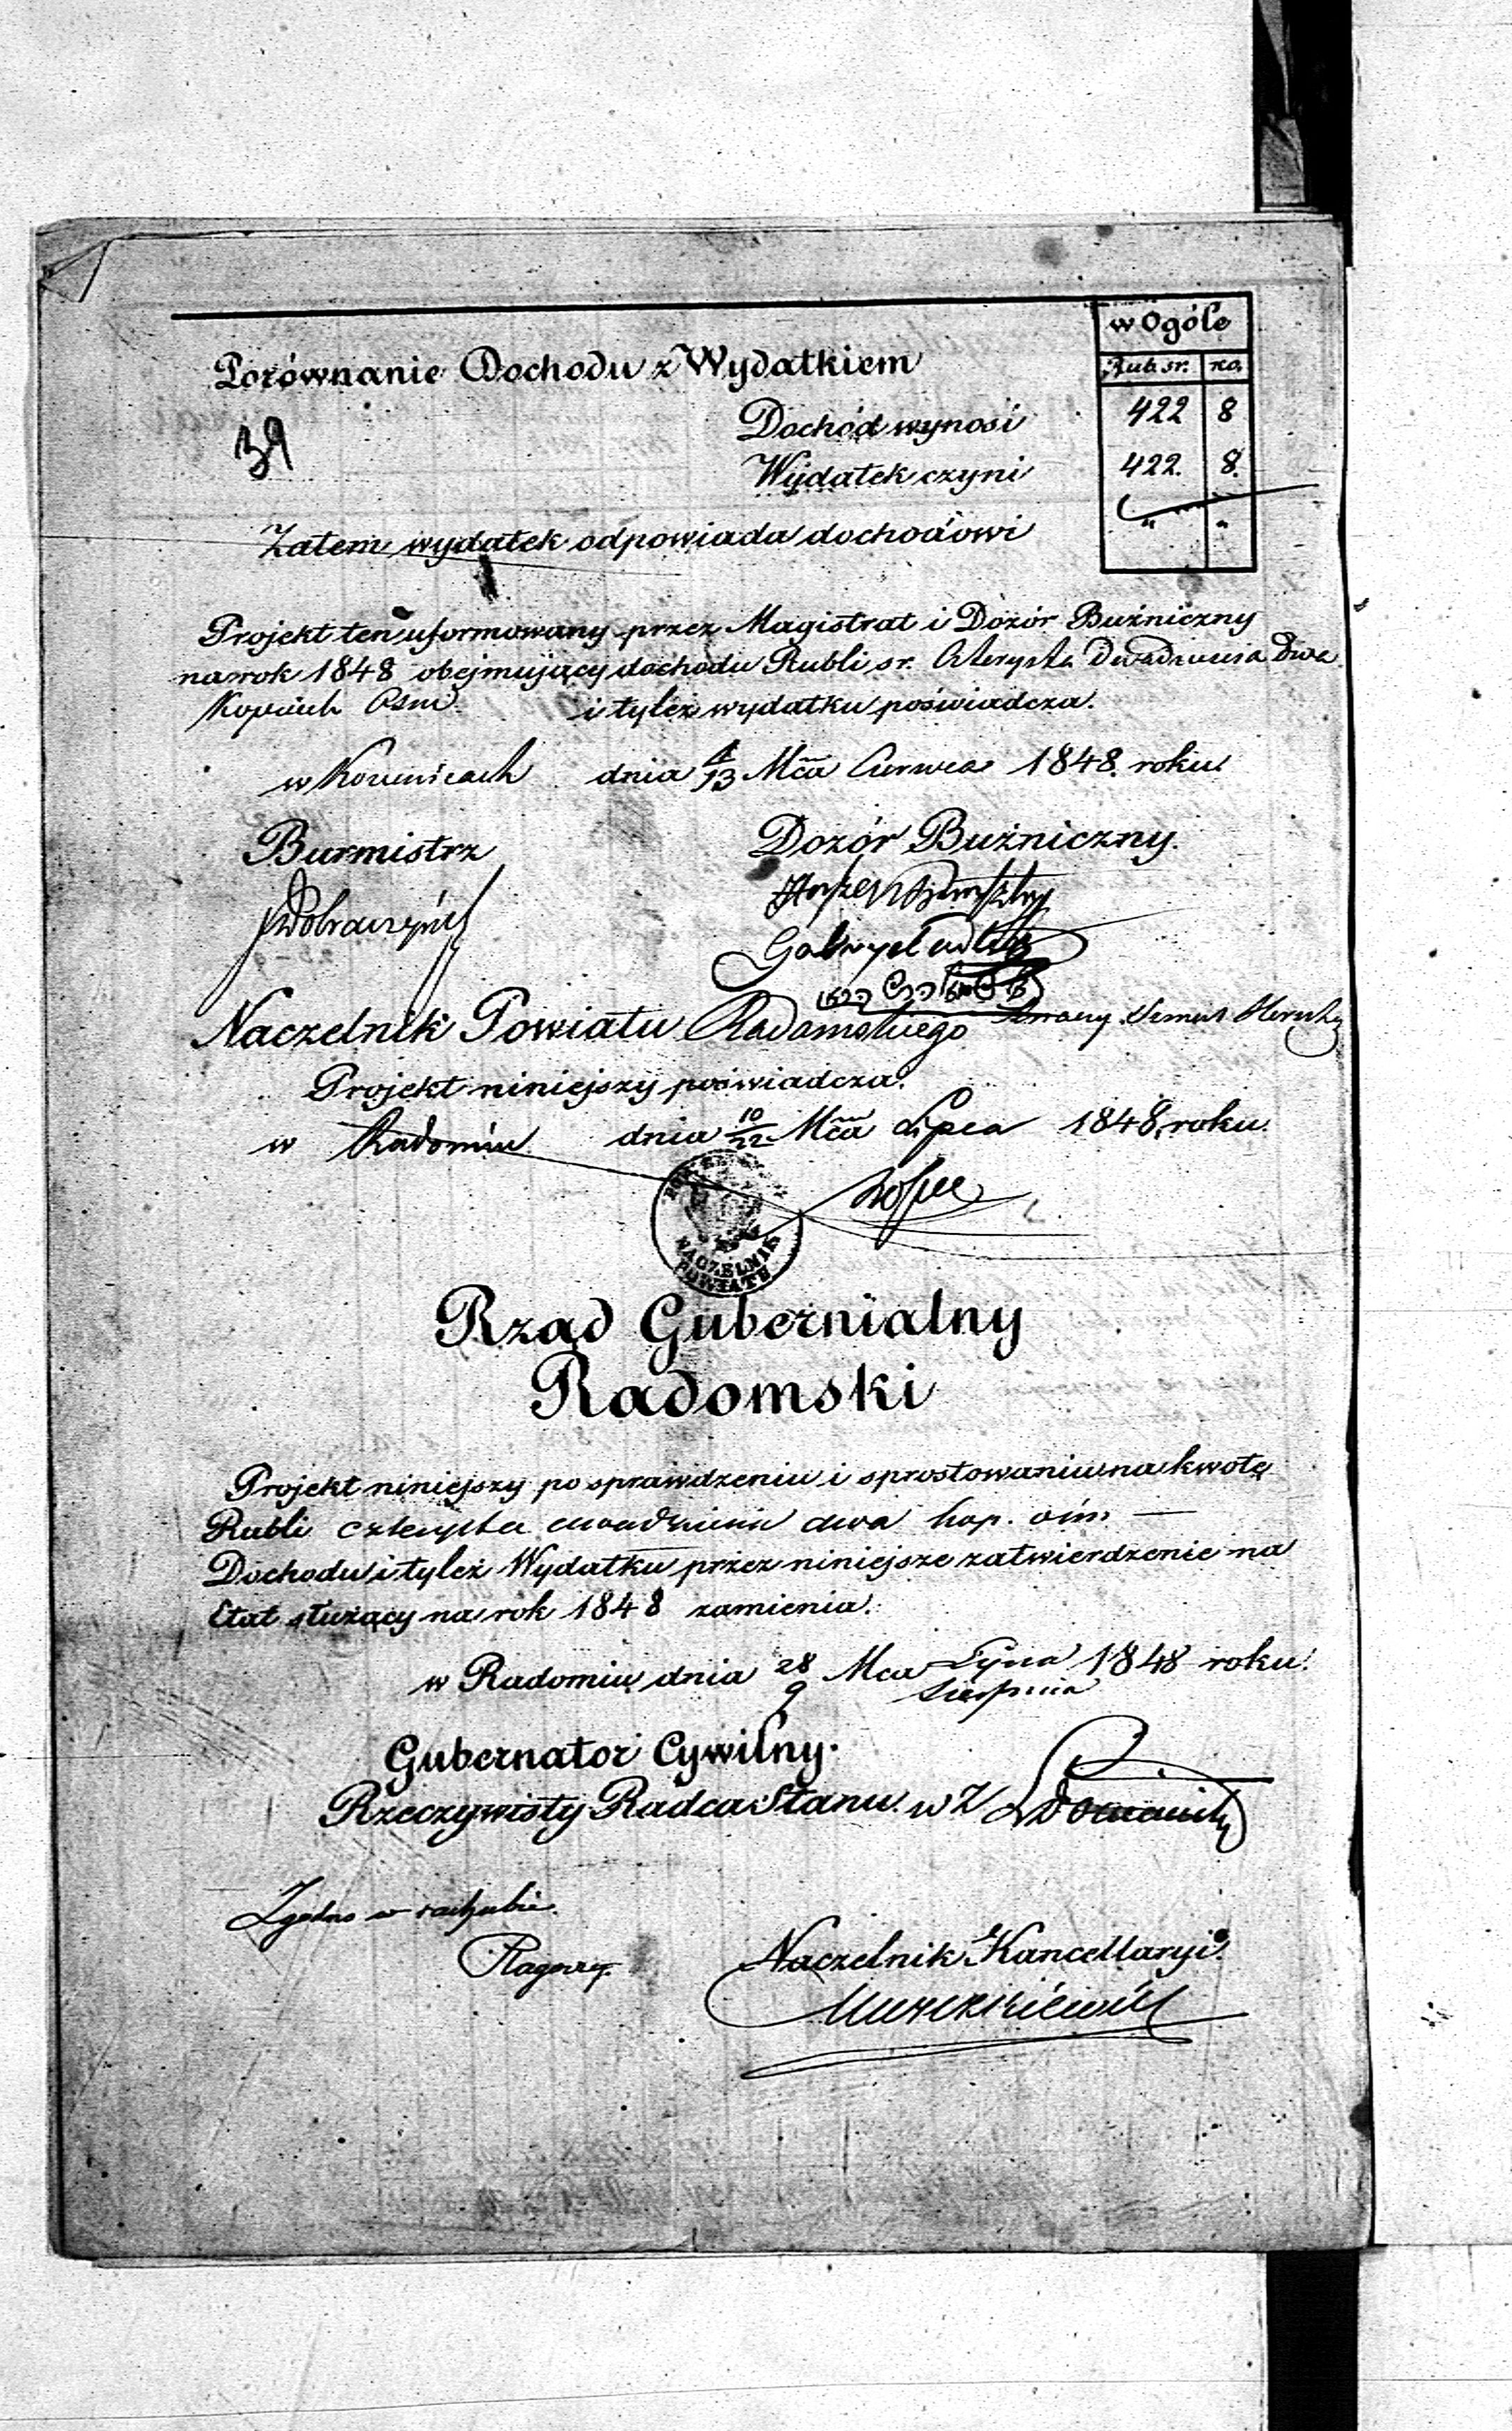 w Ogóle
Rub. sr. ko.
Porównanie Dochodu z Wydatkiem
Dochód wynosi 422 8
39
Wydatek czyni 422. 8.
Zatem wydatek odpowiada dochodowi " "
Projekt ten uformowany przez Magistrat i Dozór Buźniczny
na rok 1848 obejmujący dochodu Rubli sr. Czterysta Dwadzieścia Dwa
Kopiiek Osm i tyleż wydatku poświadcza.
w dnia Mca Czerwca 1848. roku.
Burmistrz Dozór Buźniczny.
Naczelnik Powiatu Radomskiego
Projekt niniejszy poświadcza.
w Radomiu dnia 10/22 Mca Lipca 1848, roku.
NACZELNIK
POWIATU
Rząd Gubernialny
Radomski
Projekt niniejszy po sprawdzeniu i sprostowaniu na kwotę
Rubli czterysta dwadzieścia dwa kop. ośm. —
Dochodu i tyleż Wydatku przez niniejsze zatwierdzenie na
Etat służący na rok 1848 zamienia.
w Radomiu dnia 28/9 Mca Lipca/Sierpnia 1848 roku.
Gubernator Cywilny.
Rzeczywisty Radca Stanu. w Z
Zgodno w rachubie.
Naczelnik Kancellaryi.